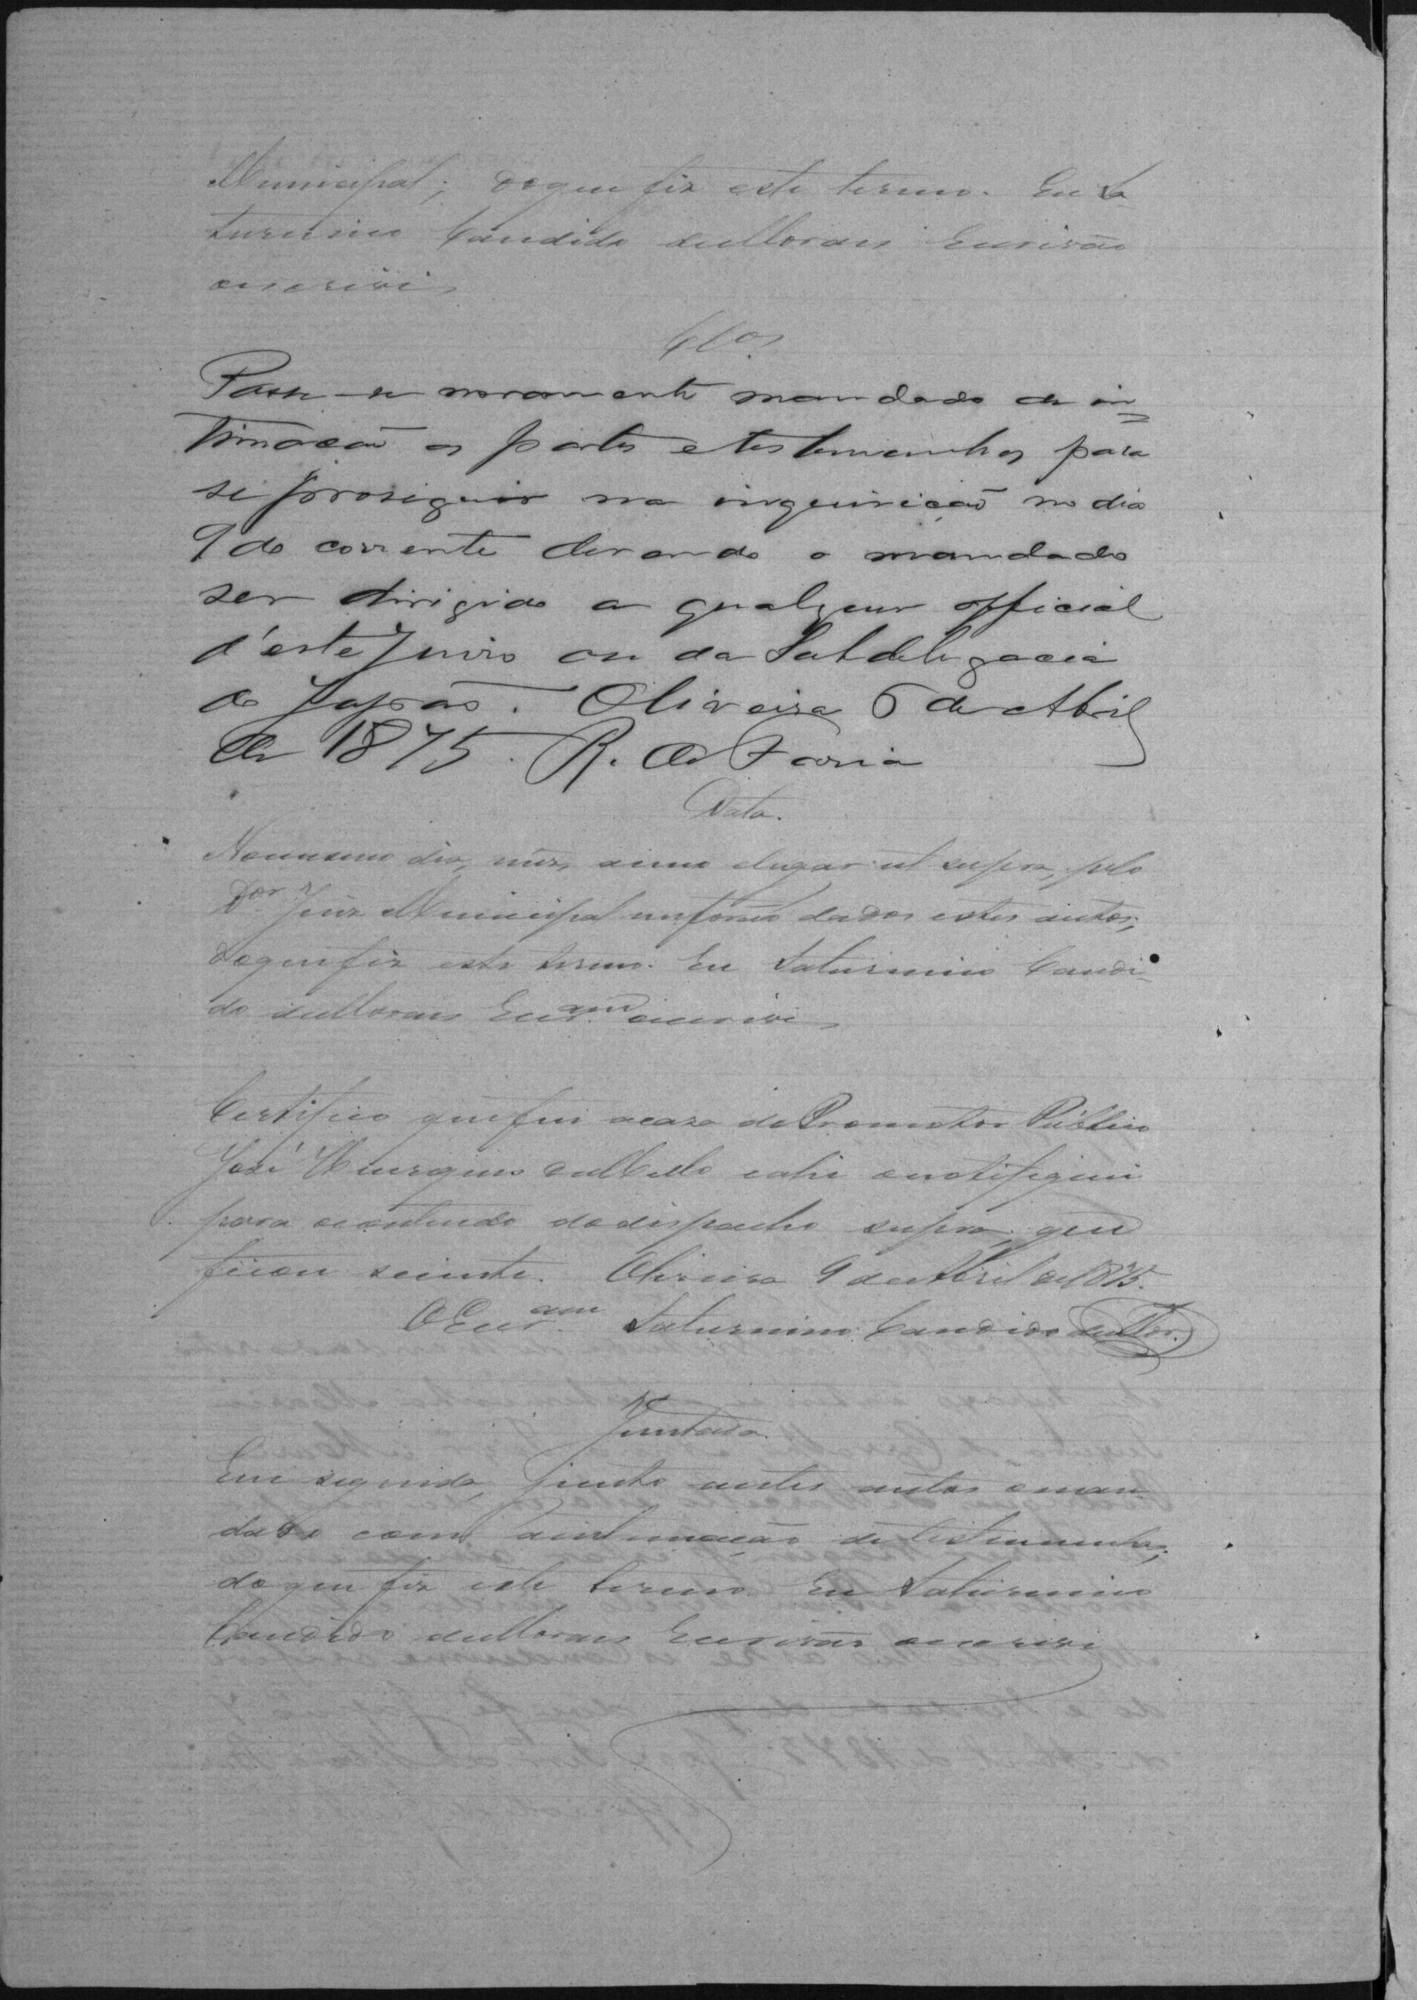 Municipal; doque fiz este termo. Eu Sa
turnino Candido de Moraes Escrivão
o escrivi
Cl.os
Passe-se novamente mandado de in=
timação as partes e testemunhas para
se proseguir na inquirição no dia
9 do corrente devendo o mandado
ser dirigido a qualquer official
d'este Juizo ou da Subdelegacia
do Japão. Oliveira 6 de Abril
de 1875. R. de Faria
Data.
No mesmo dia, mez, anno e lugar ut supra, pelo
D.or Juiz Municipal me forão dados estes autos;
doque fiz este termo. Eu Saturnino Candi-
do de Moraes Escr.am o escrivi
Certifico que fui a caza do Promotor Publico
José de Mello e ahi o notifiquei
para o contendo do despacho supra, que
ficou sciente. Oliveira 9 de Abril de 1875.
O Escr.am Saturnino Candido de Mor.
Juntada.
Em seguida, junto a estes autos o man-
dado com a intimação de testemunhas;
do que fiz este termo. Eu Saturnino
Candido de Moraes Escrivão o escrivi